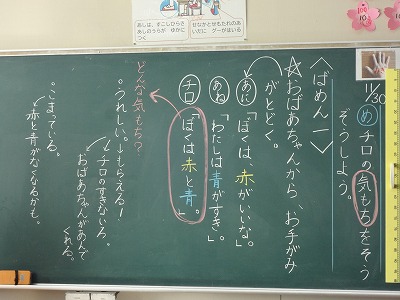 11/30
め チロの気もちをそう
ぞうしよう。
〈ばめん一〉
☆おばあちゃんから、お手がみ
がとどく。
あに「ぼくは、赤がいいな。」
あね「わたしは青がすき。」
チロ「ぼくは赤と青。」
どんな気もち?
。うれしい。→もらえる!
→チロのすきないろ。
→おばあちゃんがあんで
くれる。
。こまっている。
→赤と青がなくなるかも。
あしは、すこしひらき
あしのうらが ゆかに
つく
せなかとせもたれのあ
いだに グーがはいる
100
10
100
10